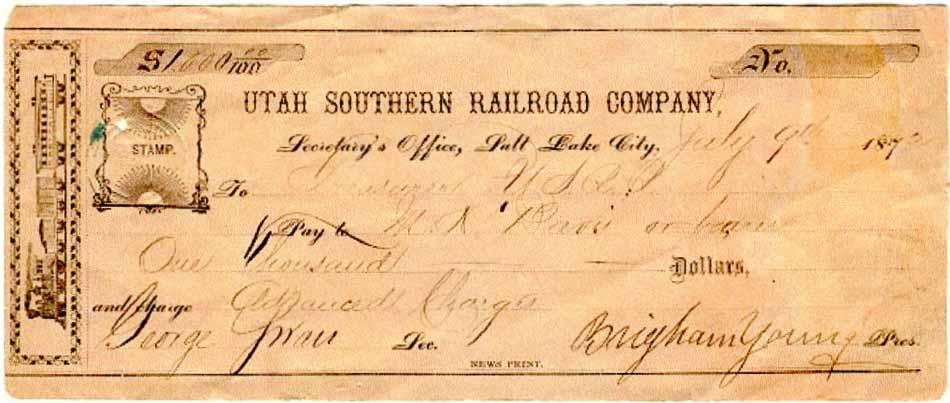 $1,000 00/100 No.
UTAH SOUTHERN RAILROAD COMPANY,
STAMP.
Secretary's Office, Salt Lake City, July 9th 187
To Treasurer U.S.R.R
Pay to Davis or bearer
One Thousand Dollars,
and Charge Advanced Charges
George Swan Sec. Brigham Young Pres.
NEWS PRINT.